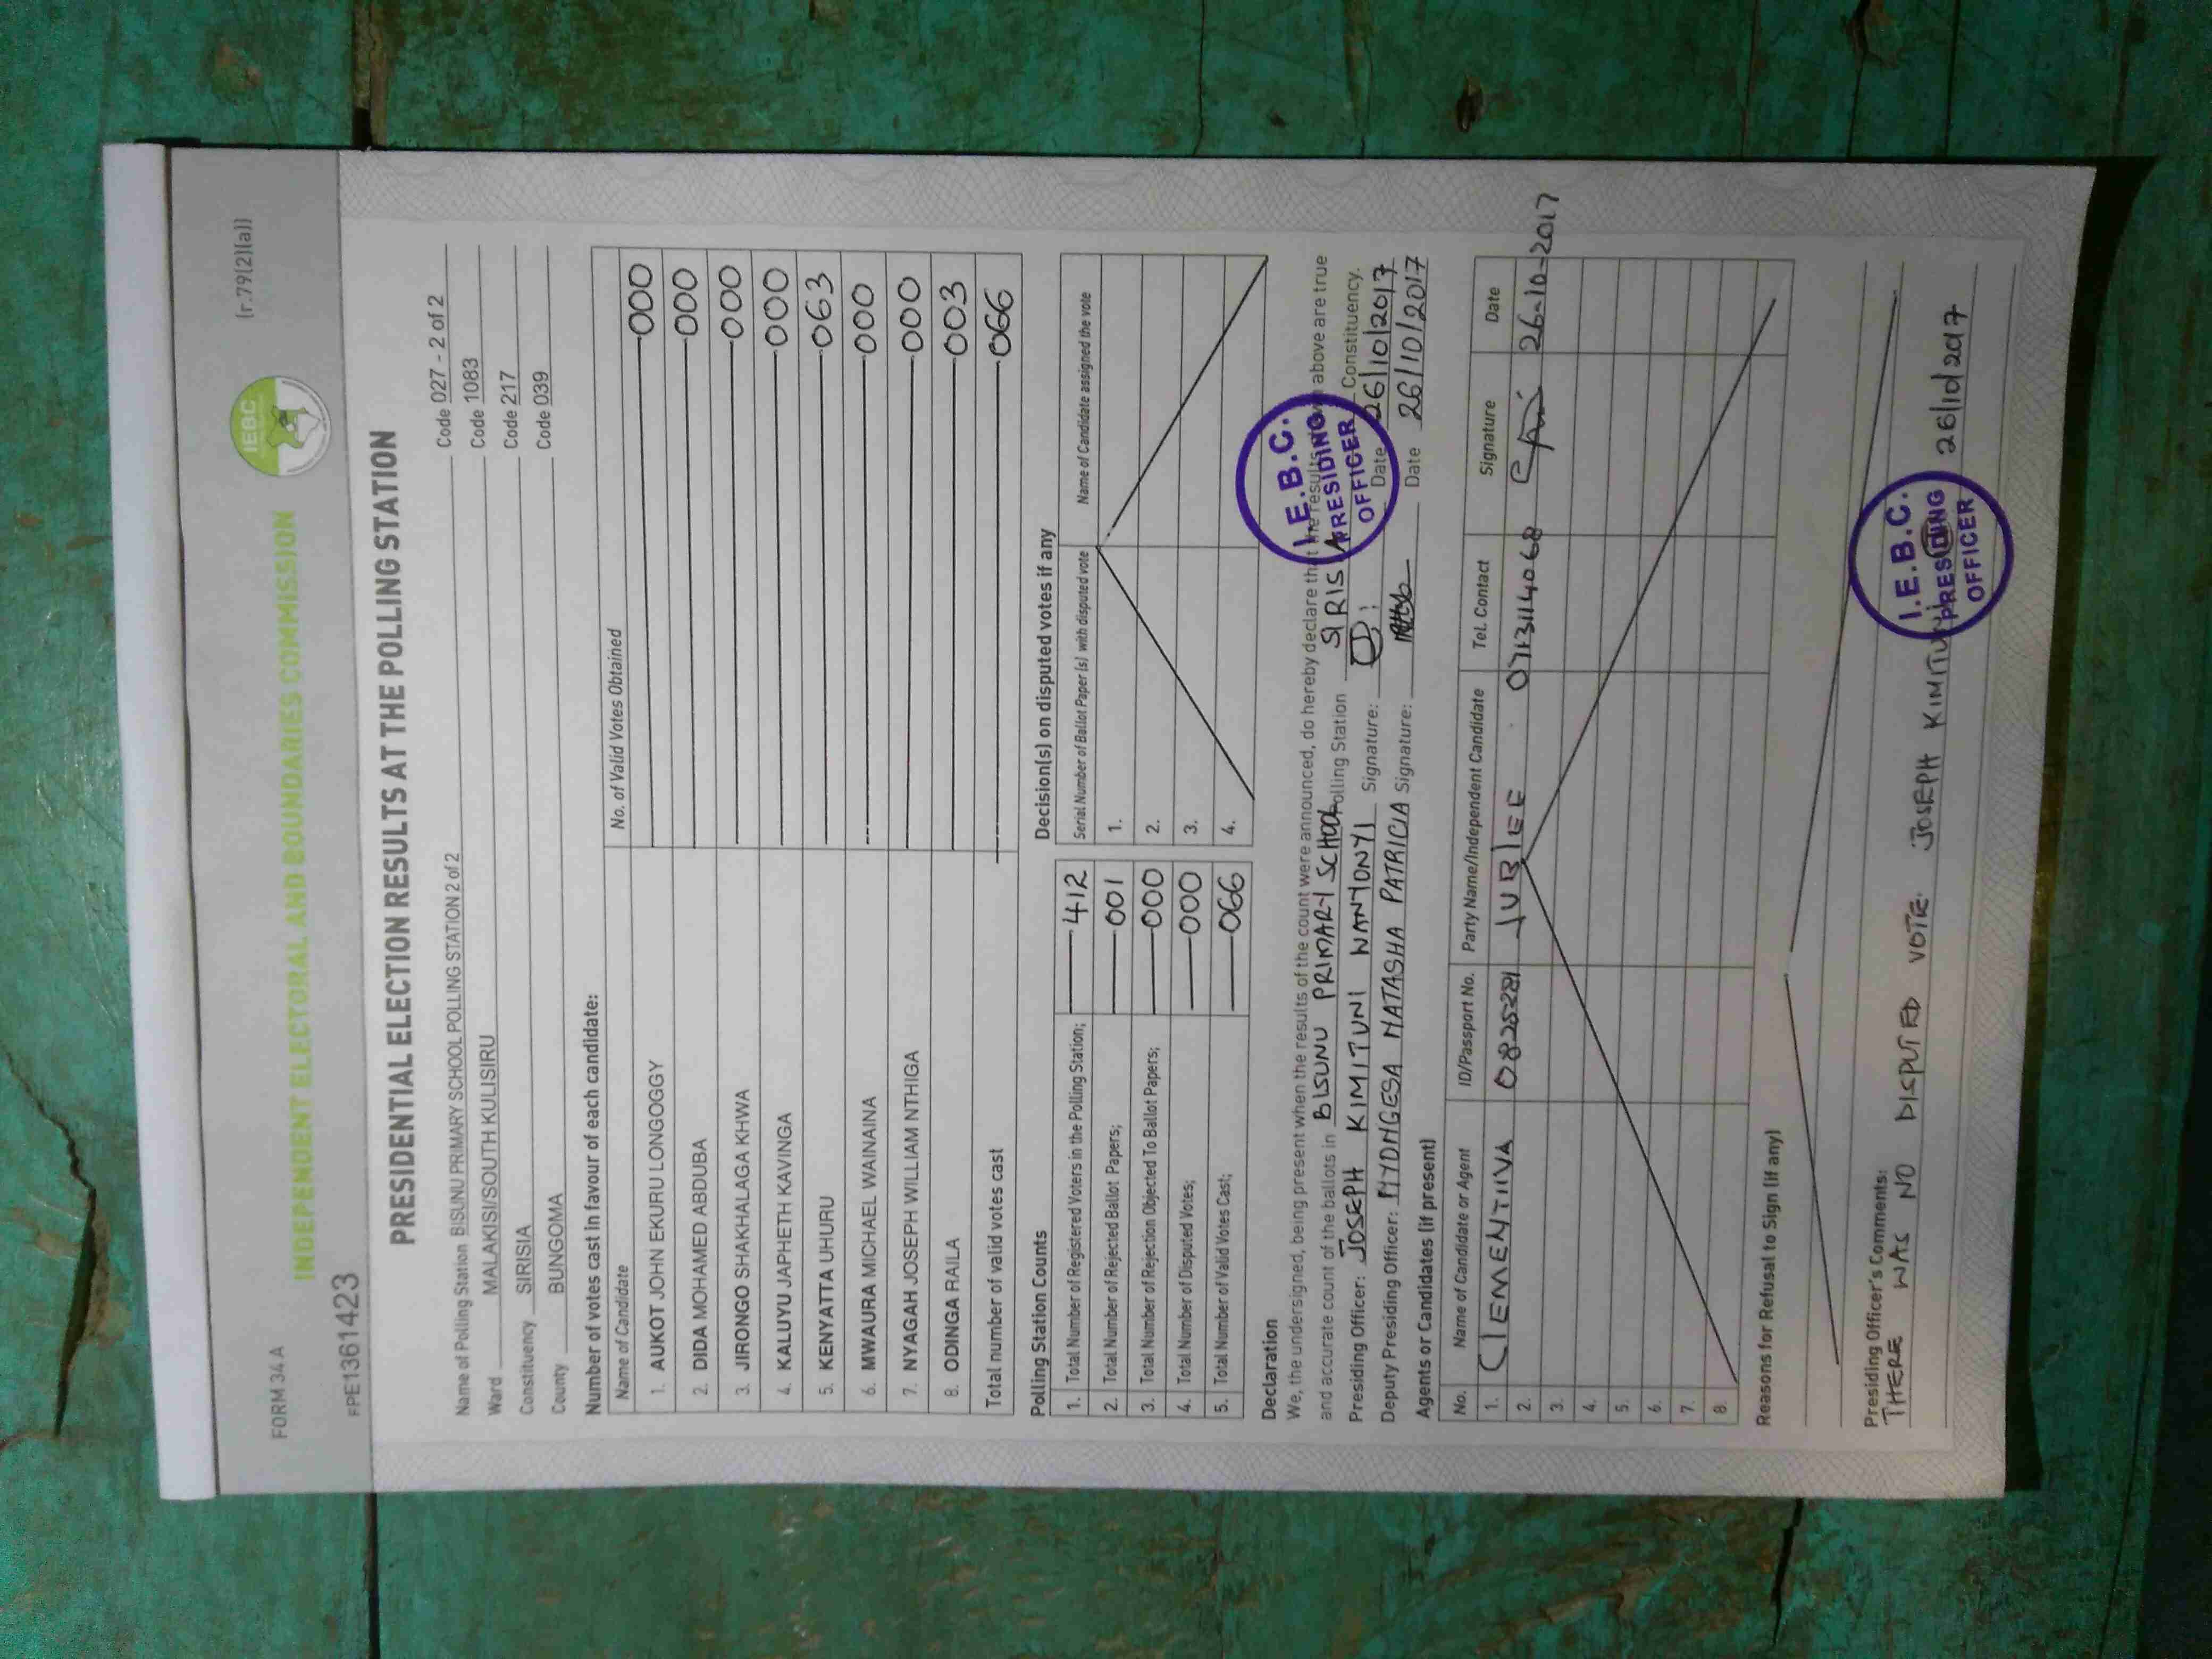 FORM 34 A
(r.79(2)(a))
IEBC
INDEPENDENT ELECTORAL AND BOUNDARIES COMMISSION
FPE1361423
PRESIDENTIAL ELECTION RESULTS AT THE POLLING STATION
Name of Polling Station BISUNU PRIMARY SCHOOL POLLING STATION 2 of 2 Code 027 - 2 of 2
Ward MALAKISI/SOUTH KULISIRU Code 1083
Constituency SIRISIA Code 217
County BUNGOMA Code 039
Number of votes cast in favour of each candidate:
Name of Candidate No. of Valid Votes Obtained
1. AUKOT JOHN EKURU LONGOGGY 000
2. DIDA MOHAMED ABDUBA 000
3. JIRONGO SHAKHALAGA KHWA 000
4. KALUYU JAPHETH KAVINGA 000
5. KENYATTA UHURU 063
6. MWAURA MICHAEL WAINAINA 000
7. NYAGAH JOSEPH WILLIAM NTHIGA 000
8. ODINGA RAILA 003
Total number of valid votes cast 066
Polling Station Counts
1. Total Number of Registered Voters in the Polling Station; 412
2. Total Number of Rejected Ballot Papers; 001
3. Total Number of Rejection Objected To Ballot Papers; 000
4. Total Number of Disputed Votes; 000
5. Total Number of Valid Votes Cast; 066
Decision(s) on disputed votes if any
Serial Number of Ballot Paper (s) with disputed vote Name of Candidate assigned the vote
1.
2.
3.
4.
Declaration
We, the undersigned, being present when the results of the count were announced, do hereby declare that the results above are true
and accurate count of the ballots in BISUNU PRIMARY SCHOOL Polling Station SIRISIA Constituency.
Presiding Officer: JOSEPH KIMITUNI WANYONYI Signature: Date 26/10/2017
Deputy Presiding Officer: NATASHA PATRICIA Signature: Date 26/10/2017
I.E.B.C.
PRESIDING
OFFICER
Agents or Candidates (if present)
No. Name of Candidate or Agent ID/Passport No. Party Name/Independent Candidate Tel. Contact Signature Date
1. JUBLEE 26-10-2017
2.
3.
4.
5.
6.
7.
8.
Reasons for Refusal to Sign (if any)
Presiding Officer's Comments:
THERE WAS NO DISPUTED VOTE. JOSEPH KIMITUNI 26/10/2017
I.E.B.C.
PRESIDING
OFFICER